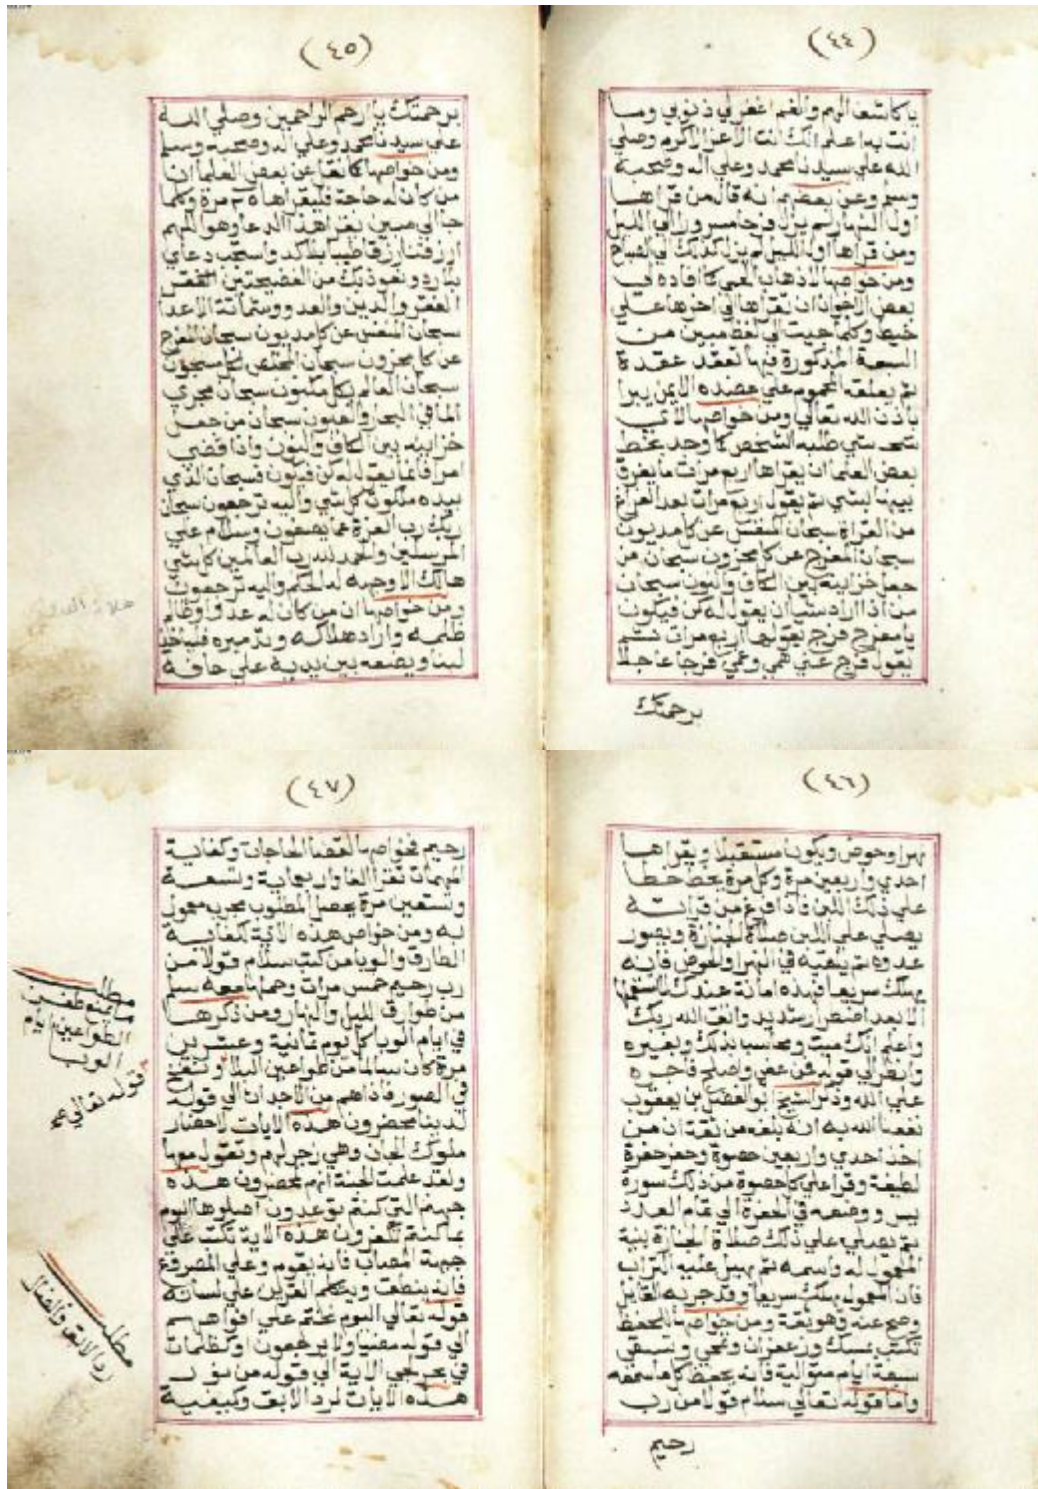 (٤٤)
يا كاشف الهم والغم اغفرلي ذنوبي وما
انت به اعلم انك انت الاعز الاكرم وصلي
الله علي سيدنا محمد وعلي اله وصحبه
وسلم وعن بعضهم انه قال من قراها
اول النهار لم يزل فرحا مسرورا الي الليل
ومن قراها اول الليل لم يزل كذلك الي الصباح
ومن خواصها لاذهاب الحمي كما افاده لي
بعض الاخوان ان تقراها الي اخرها علي
خيط وكلما جيت الي لفظ مبين من
السبعة المذكورة فيها تعقد عقدة
ثم يعلقه المحموم علي عضده الايمن يبرا
باذن الله تعالي ومن خواصها لاي
شي طلبه الشخص كما وجد بخط
بعض العلما ان يقراها اربع مرات ما يفرق
بينها بشي ثم يقول اربع مرات بعد الفراغ
من القراة سبحان المنفس عن كل مديون
سبحان المفرج عن كل محزون سبحان من
جعل خزاينه بين الكاف والنون سبحان
من اذا اراد شيا ان يقول له كن فيكون
يا مفرج فرج يقولها اربع مرات ثم
يقول فرج عني همي وغمي فرجا عاجلا
برحمتك
(٤٥)
برحمتك يا ارحم الراحمين وصلي الله
علي سيدنا محمد وعلي اله وصحبه وسلم
ومن خواصها كما نقل عن بعض العلما ان
من كان له حاجة فليقراها مرة وكلما
جا الي مبين يقرا هذا الدعا وهو اللهم
ارزقنا رزقا طيبا بلا كد واستجب دعاي
بلا رد ونعوذ بك من الفضيحتين الفقر
الفقر والدين والعدو وشماتة الاعدا
سبحان المنفس عن كل مديون سبحان المفرج
عن كل محزون سبحان المخلص كل مسجون
سبحان العالم بكل مكنون سبحان مجري
الما في البحر والعيون سبحان من جعل
خزاينه بين الكاف والنون واذا قضي
امرا فانما يقول له كن فيكون فسبحان الذي
بيده ملكوت كل شي واليه ترجعون سبحان
ربك رب العزة عما يصفون وسلام علي
المرسلين والحمد لله رب العالمين كل شي
هالك الا وجهه له الحكم واليه ترجعون
ومن خواصها ان من كان له عدو او ظالم
ظلمه واراد هلاكه وتدميره فلياخذ
لبنا ويضعه بين يديه علي حافة
(٤٦)
نهر او حوض ويكون مستقبلا ويقراها
احدي واربعين مرة وكل مرة يخط خطا
علي ذلك اللبن فاذا فرغ من قراته
يصلي علي اللبن صلاة الجنازة ويصور
عدوه ثم يلقيه في النهر او الحوض فانه
يهلك سريعا فهذه امانة عندك لا تستعملها
الا بعد اضطرار شديد واتق الله ربك
واعلم انك ميت ومحاسب بذلك وبغيره
وانظر الي قوله فمن عفي واصلح فاجره
علي الله وذكر الشيخ ابو الفضل بن يعقوب
نفعنا الله به انه بلغه من ثقة ان من
اخذ احدي واربعين حصوة وحفر حفرة
لطيفة وقرا علي كل حصوة من ذلك سورة
يس ووضعه في الحفرة الي تمام العدد
ثم يصلي علي ذلك صلاة الجنازة بنية
المعمول له واسمه ثم يهيل عليه التراب
فان المعمول يهلك سريعا وقد جربه القايل
وصح عنه وهو ثقة ومن خواصها للحفظ
تكتب بمسك وزعفران وتمحي وتسقي
سبعة ايام متوالية فانه يحفظ كل ما سمعه
واما قوله تعالي سلام قولا من رب
رحيم
(٤٧)
رحيم فخواصها لقضا الحاجات وكفاية
المهمات تقرا الفا واربعماية وتسعة
وتسعين مرة يحصل المطلوب مجرب معمول
به ومن خواص هذه الاية لكفاية
الطارق والوبا من كتب سلام قولا من
رب رحيم خمس مرات وحملها معه سلم
من طوارق الليل والنهار ومن ذكرها
في ايام الوبا كل يوم ثمانية وعشرين
مرة كان سالما من طواعين البلا ونفخ
في الصور فاذا هم من الاجداث الي قوله
لدينا محضرون هذه الايات لاحضار
ملوك الجان وهي زجر لهم وتقول معها
ولقد علمت الجنة انهم لمحضرون هذه
جهنم التي كنتم توعدون اصلوها اليوم
بما كنتم تكفرون هذه الاية تكتب علي
جبهة المصاب فانه يقوم وعلي المصروع
فانه ينطق ويتكلم القرين علي لسانه
قوله تعالي اليوم نختم علي افواههم
الي قوله مضيا ولا يرجعون او كظلمات
في بحر لجي الاية الي قوله من نور
هذه الايات لرد الابق وكيفية
مطلب
ما يمنع طعن
الطواعين ايام
الوبا
قوله تعالي
مطلب
رد الابق والضال